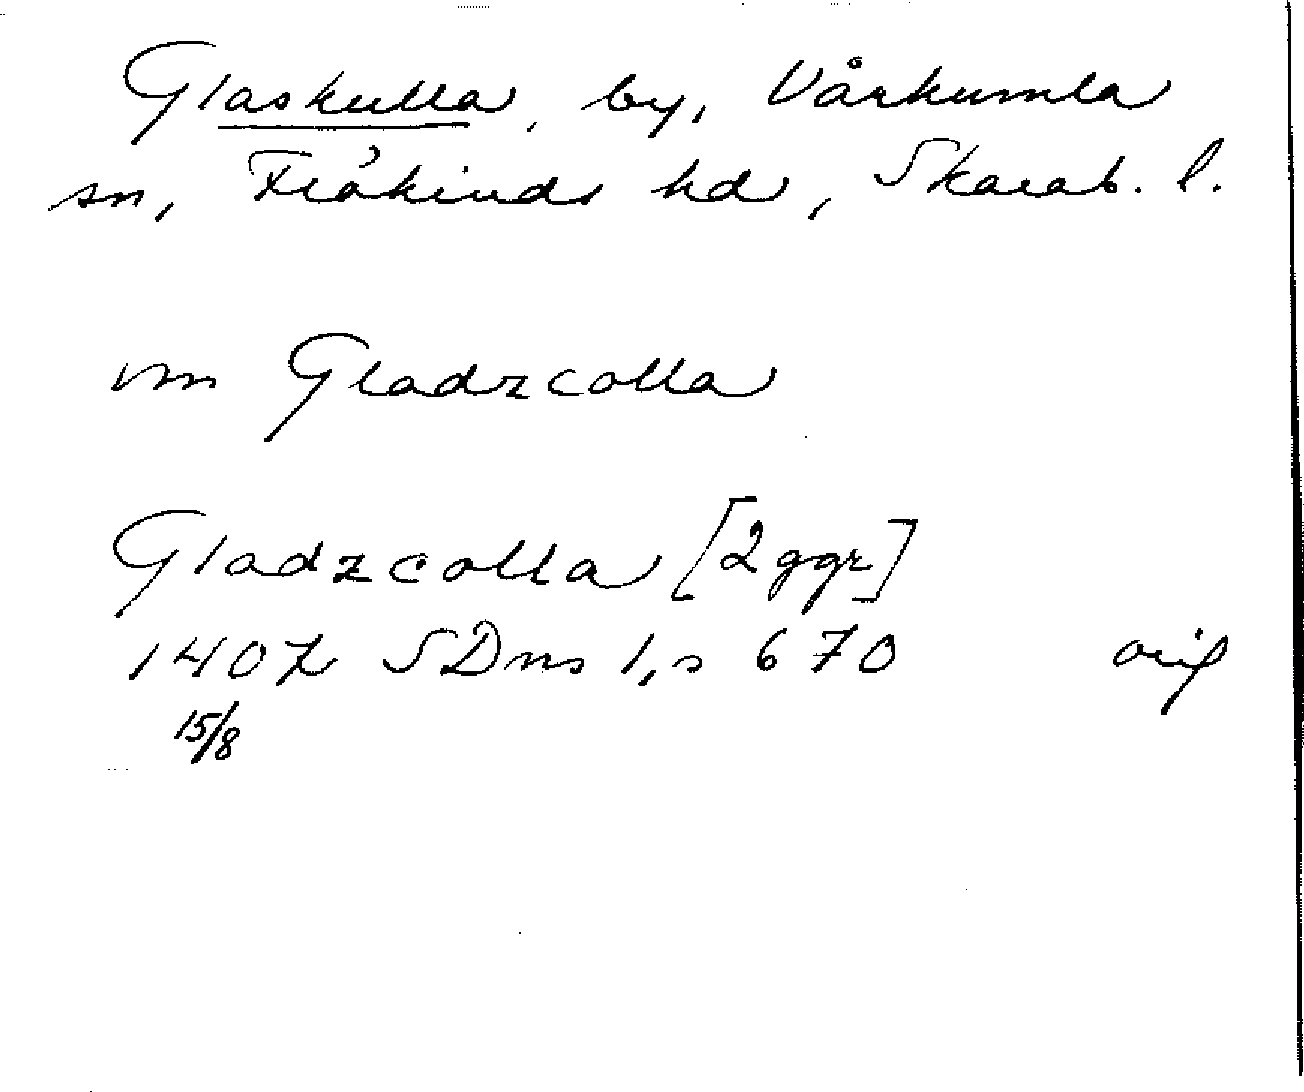 Glaskulla, by, Vårkumla
sn, Frökinds hd, Skarab. l.
vm Gladzcolla
Gladzcolla [2 ggr]
1407 SDns 1, s 670 orig
15/8